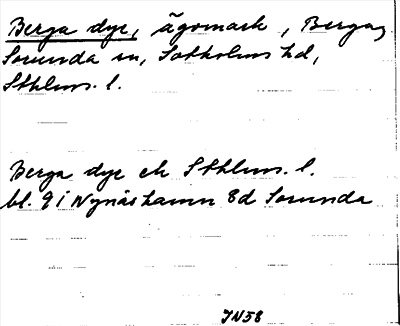 Berga dye, ägomark, Berga,
Sorunda sn, Sotholms hd,
Sthlms. l.
Berga dye ek Sthlms. l.
bl. 9 i Nynäshamn 8d Sorunda
JN58